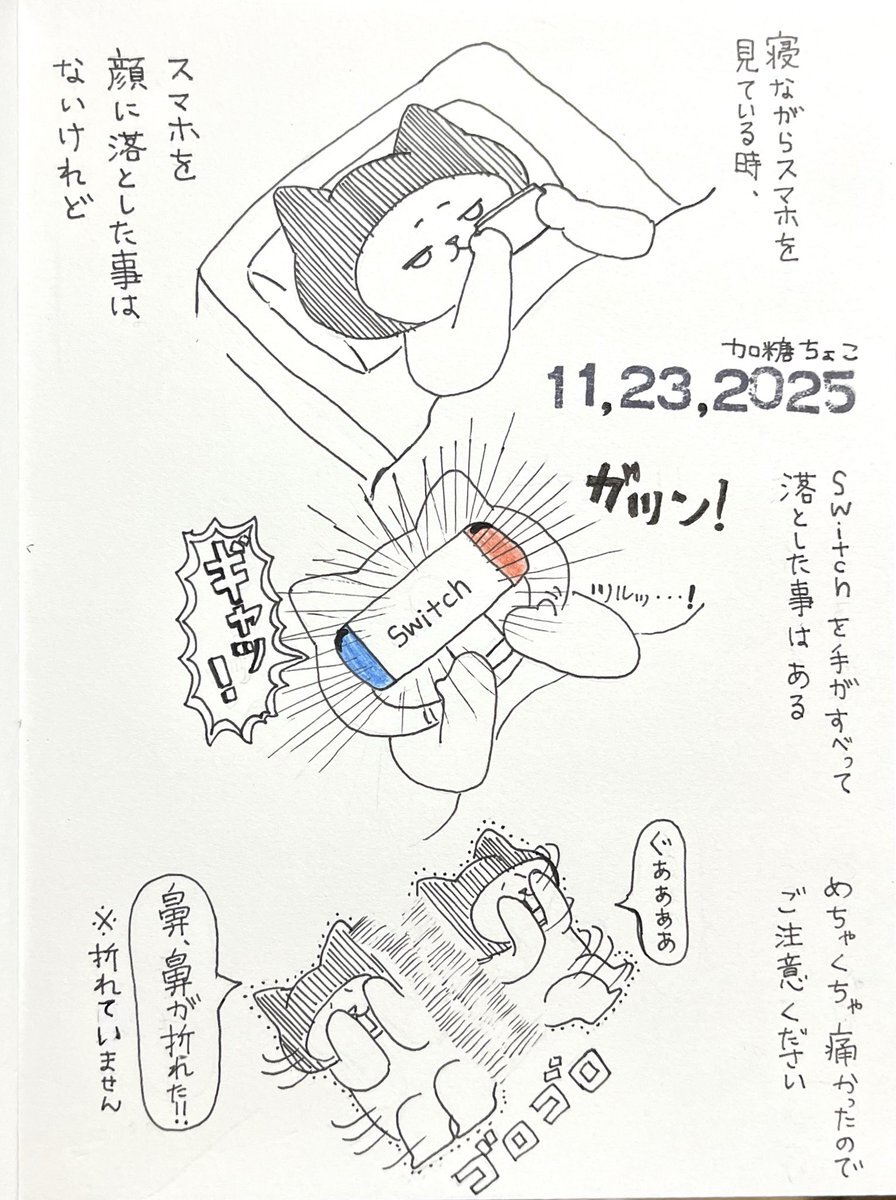 寝ながらスマホを
見ている時、
スマホを
顔に落とした事は
ないけれど
加糖ちょこ
11,23,2025
Switchを手がすべって
落とした事はある
ガツン!
ツルッ…!
Switch
ギャッ!
めちゃくちゃ痛かったので
ご注意ください
ぐぁぁぁぁ
ゴロゴロ
鼻、鼻が折れた!!
※折れていません